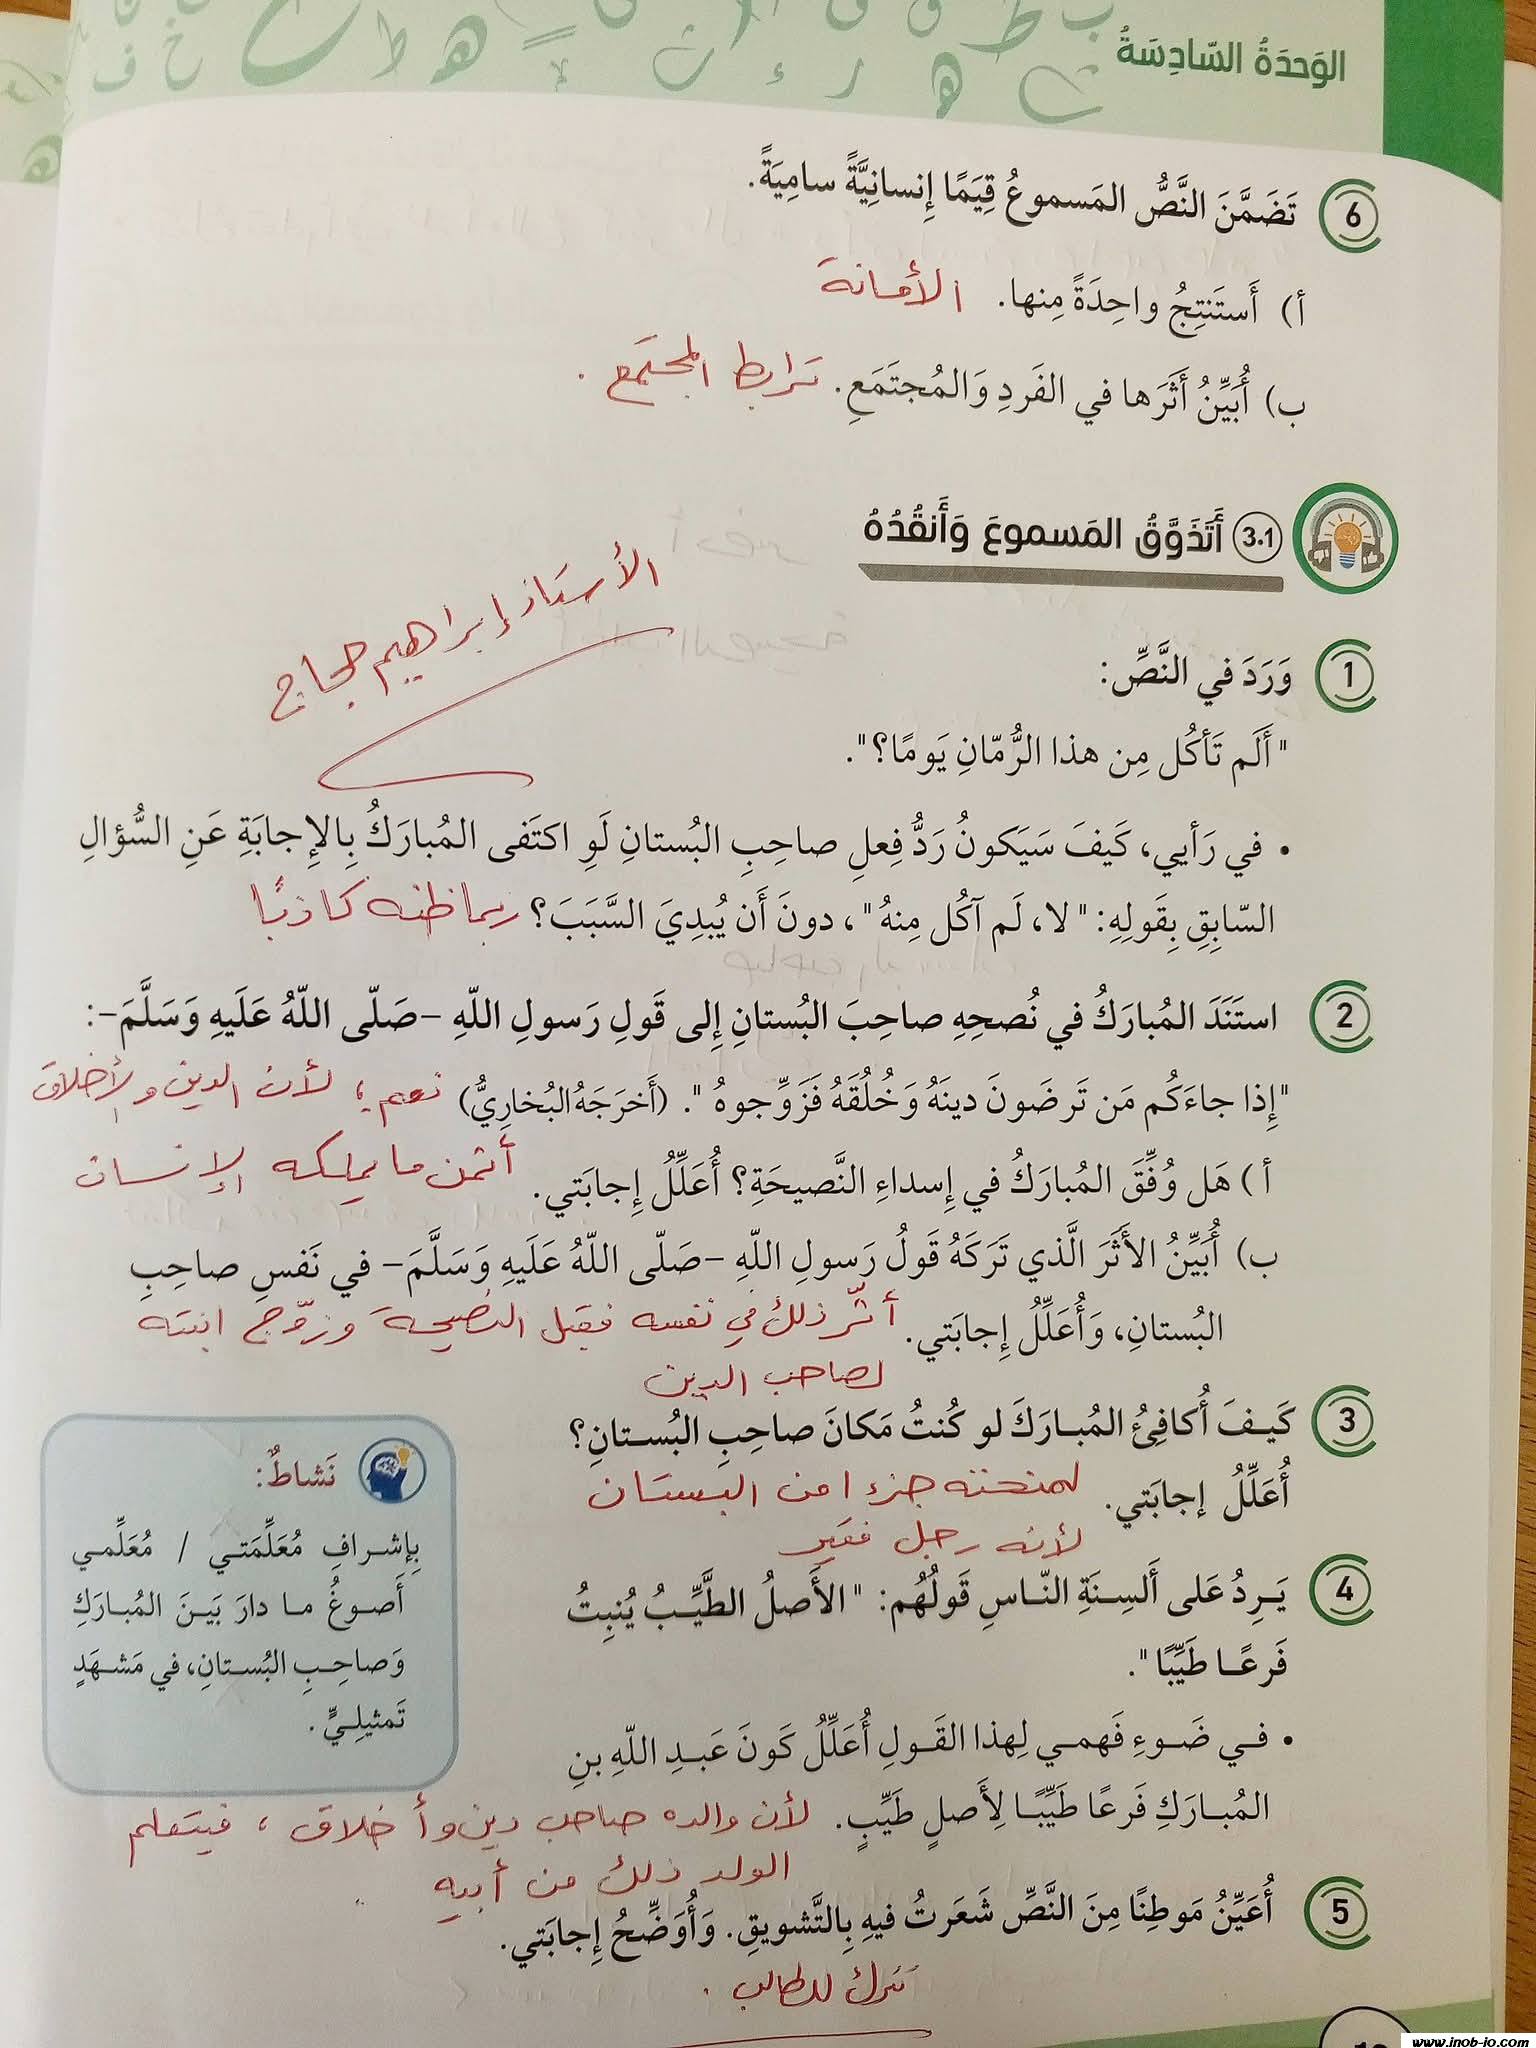 الوَحدَةُ السّادِسَةُ
6 تَضَمَّنَ النَّصُّ المَسموعُ قِيَمًا إِنسانِيَّةً سامِيَةً.
أ) أَستَنتِجُ واحِدَةً مِنها. الأمانة
ب) أُبَيِّنُ أَثَرَها في الفَردِ وَالمُجتَمَعِ. ترابط المجتمع .
3.1 أَتَذَوَّقُ المَسموعَ وَأَنقُدُهُ
الأستاذ إبراهيم حجاج
1 وَرَدَ في النَّصِّ:
"أَلَم تَأكُل مِن هذا الرُّمّانِ يَومًا؟".
• في رَأيي، كَيفَ سَيَكونُ رَدُّ فِعلِ صاحِبِ البُستانِ لَوِ اكتَفى المُبارَكُ بِالإِجابَةِ عَنِ السُّؤالِ
السّابِقِ بِقَولِهِ: "لا، لَم آكُل مِنهُ"، دونَ أَن يُبدِيَ السَّبَبَ؟ ربما ظنه كاذبًا
2 استَنَدَ المُبارَكُ في نُصحِهِ صاحِبَ البُستانِ إِلى قَولِ رَسولِ اللّهِ –صَلّى اللّهُ عَلَيهِ وَسَلَّمَ–:
"إِذا جاءَكُم مَن تَرضَونَ دينَهُ وَخُلُقَهُ فَزَوِّجوهُ". (أَخرَجَهُ البُخارِيُّ) نعم؛ لأن الدين والأخلاق
أ ) هَل وُفِّقَ المُبارَكُ في إِسداءِ النَّصيحَةِ؟ أُعَلِّلُ إِجابَتي. أثمن ما يملكه الإنسان
ب) أُبَيِّنُ الأَثَرَ الَّذي تَرَكَهُ قَولُ رَسولِ اللّهِ –صَلّى اللّهُ عَلَيهِ وَسَلَّمَ– في نَفسِ صاحِبِ
البُستانِ، وَأُعَلِّلُ إِجابَتي. أثّر ذلك في نفسه فقبل النصيحة وزوّج ابنته
لصاحب الدين
3 كَيفَ أُكافِئُ المُبارَكَ لو كُنتُ مَكانَ صاحِبِ البُستانِ؟
أُعَلِّلُ إجابَتي. لمنحته جزءا من البستان
لأنه رجل فقير
4 يَرِدُ عَلى أَلسِنَةِ النّاسِ قَولُهُم: "الأَصلُ الطَّيِّبُ يُنبِتُ
فَرعًا طَيِّبًا".
• في ضَوءِ فَهمي لِهذا القَولِ أُعَلِّلُ كَونَ عَبدِ اللّهِ بنِ
المُبارَكِ فَرعًا طَيِّبًا لِأَصلٍ طَيِّبٍ. لأن والده صاحب دين وأخلاق ، فيتعلم
الولد ذلك من أبيه
5 أُعَيِّنُ مَوطِنًا مِنَ النَّصِّ شَعَرتُ فيهِ بِالتَّشويقِ. وَأُوَضِّحُ إِجابَتي.
تترك للطالب .
نَشاطٌ:
بِإشرافِ مُعَلِّمَتي / مُعَلِّمي
أَصوغُ ما دارَ بَينَ المُبارَكِ
وَصاحِبِ البُستانِ، في مَشهَدٍ
تَمثيلِيٍّ.
www.inob-jo.com